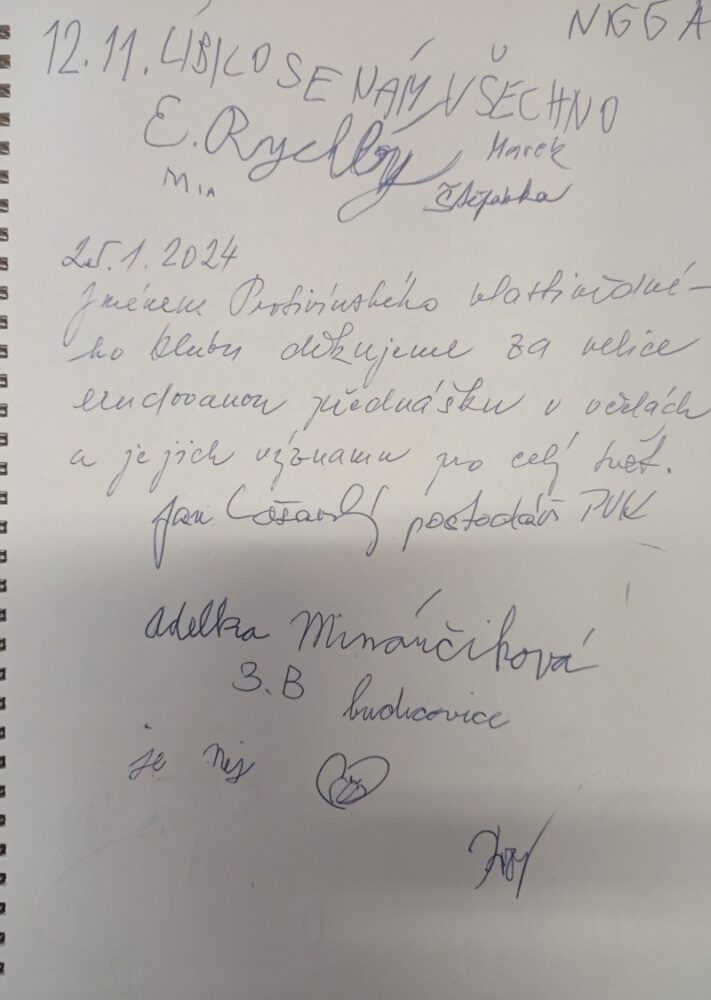 NGGA
12.11. LÍBILO SE NÁM VŠECHNO
E. Rychlý
Marek
MIA
Štěpánka
25.1.2024
Jménem Protivínského vlastivědné-
ho klubu děkujeme za velice
erudovanou přednášku o včelách
a jejich významu pro celý svět.
Jan pořadatel PVK
Adelka Minarčiková
3.B
budicovice
je nej